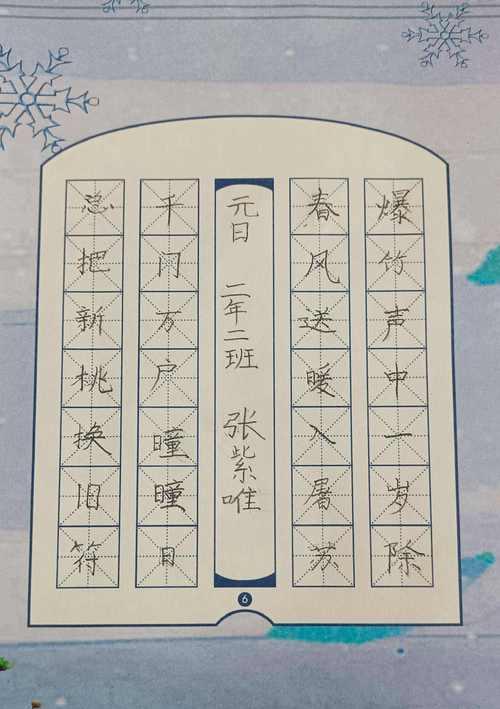 爆竹声中一岁除
春风送暖入屠苏
元日 二年二班 张紫唯
千门万户曈曈日
总把新桃换旧符
6